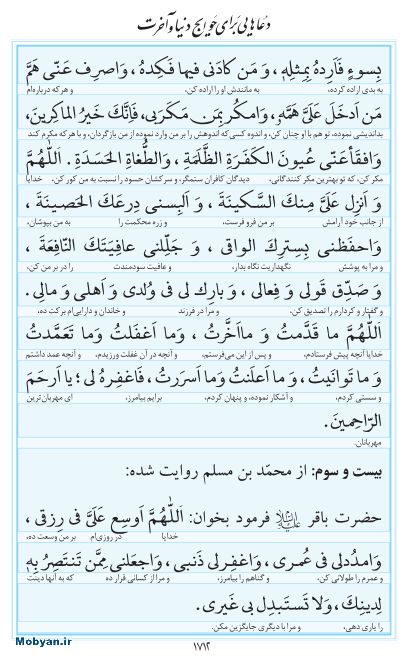 دعاهایی برای حوایج دنیا و آخرت
بِسوءٍ فَاَرِدهُ بِمِثلِهِ، وَ مَن كادَنى فيها فَكِدهُ، وَاصرِف عَنّى هَمَّ
به بدی اراده کرده، به مانندش او را اراده کن، و هر که درباره‌ام
مَن اَدخَلَ عَلَىَّ هَمَّهُ، وَامكُر بِمَن مَكَرَ بى، فَاِنَّكَ خَيرُ الماكِرينَ،
بداندیشی نموده، تو هم با او چنان کن، و اندوه کسی که اندوهش را بر من وارد نموده از من بازگردان، و با هر که مکرم کند
وَافقَأ عَنّى عُيونَ الكَفَرَةِ الظَّلَمَةِ، وَالطُّغاةِ الحَسَدَةِ. اَللّٰهُمَّ
مکر کن، که تو بهترین مکر کنندگانی، دیدگان کافران ستمگر، و سرکشان حسود را نسبت به من کور کن، خدایا
وَ اَنزِل عَلَىَّ مِنكَ السَّكينَةَ، وَ اَلبِسنى دِرعَكَ الحَصينَةَ،
از جانب خود آرامش بر من فرو فرست، و زره محکمت را به من بپوشان،
وَاحفَظنى بِسِترِكَ الواقى، وَ جَلِّلنى عافِيَتَكَ النّافِعَةَ،
و مرا به پوشش نگهداریت نگاه بدار، و عافیت سودمندت را در بر من کن،
وَ صَدِّق قَولى وَ فِعالى، وَ بارِك لى فى وُلدى وَ اَهلى وَ مالى.
و گفتار و کردارم را تصدیق کن، و مرا در فرزند و خاندان و دارایی‌ام برکت ده،
اَللّٰهُمَّ ما قَدَّمتُ وَ ما اَخَّرتُ، وَ ما اَغفَلتُ وَ ما تَعَمَّدتُ
خدایا آنچه پیش فرستادم، و پس از این می‌فرستم، و آنچه در آن غفلت ورزیدم، و آنچه عمد داشتم
وَ ما تَوانَيتُ، وَ ما اَعلَنتُ وَ ما اَسرَرتُ، فَاغفِرهُ لى؛ يا اَرحَمَ
و سستی کردم، و آشکار نموده، و پنهان کردم، برایم بیامرز، ای مهربان‌ترین
الرّاحِمينَ.
مهربانان.
بیست و سوم: از محمّد بن مسلم روایت شده:
حضرت باقر علیه‌السلام فرمود بخوان: اَللّٰهُمَّ اَوسِع عَلَىَّ فى رِزقى،
خدایا در روزی‌ام بر من وسعت ده،
وَامدُد لى فى عُمرى، وَاغفِر لى ذَنبى، وَاجعَلنى مِمَّن تَنتَصِرُ بِهِ
و عمرم را طولانی کن، و گناهم را بیامرز، و مرا از کسانی قرار ده که به آنها دینت
لِدينِكَ، وَلا تَستَبدِل بى غَيرى.
را یاری دهی، و مرا با دیگری جایگزین مکن.
۱۷۱۲
Mobyan.ir